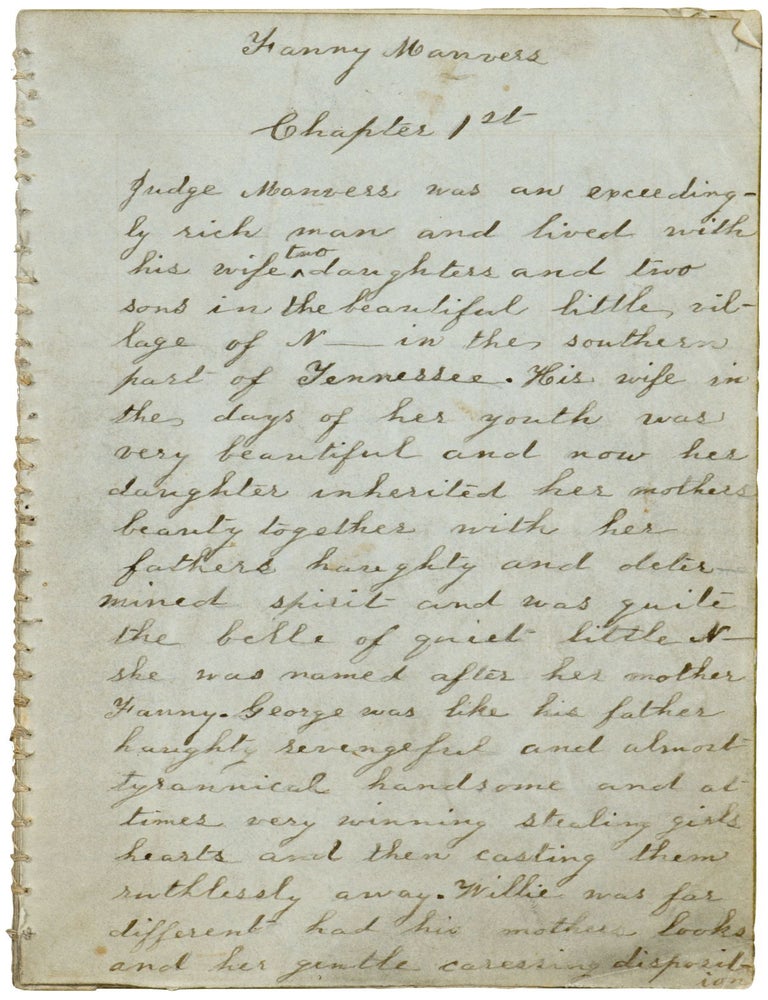 Fanny Manvers
Chapter 1st
Judge Manvers was an exceeding-
ly rich man and lived with
his wife ^two daughters and two
sons in the beautiful little vil-
lage of N— in the southern
part of Tennessee. His wife in
the days of her youth was
very beautiful and now her
daughter inherited her mothers
beauty together with her
fathers haughty and deter-
mined spirit and was quite
the belle of quiet little N—
she was named after her mother
Fanny. George was like his father
haughty revengeful and almost
tyrannical handsome and at
times very winning stealing girls
hearts and then casting them
ruthlessly away. Willie was far
different had his mothers looks
and her gentle caressing disposit-
ion